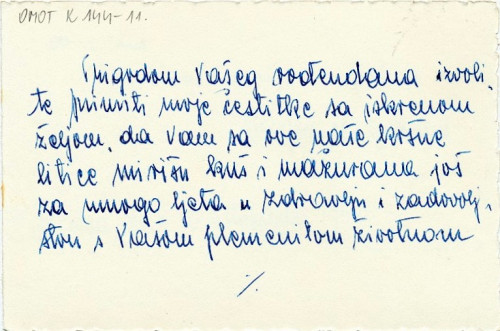 OMOT K 144-11.
Prigodom Vašeg rođendana izvoli-
te primiti moje čestitke sa iskrenom
željom, da Vam sa ove naše kršne
litice mirišu kuš i mažurana još
za mnogo ljeta u zdravlju i zadovolj-
stvu s Vašom plemenitom životnom
./.